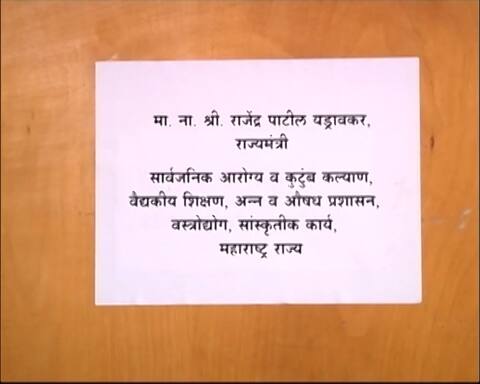 मा. ना. श्री. राजेंद्र पाटील यड्रावकर,
राज्यमंत्री
सार्वजनिक आरोग्य व कुटुंब कल्याण,
वैद्यकीय शिक्षण, अन्न व औषध प्रशासन,
वस्त्रोद्योग, सांस्कृतीक कार्य,
महाराष्ट्र राज्य